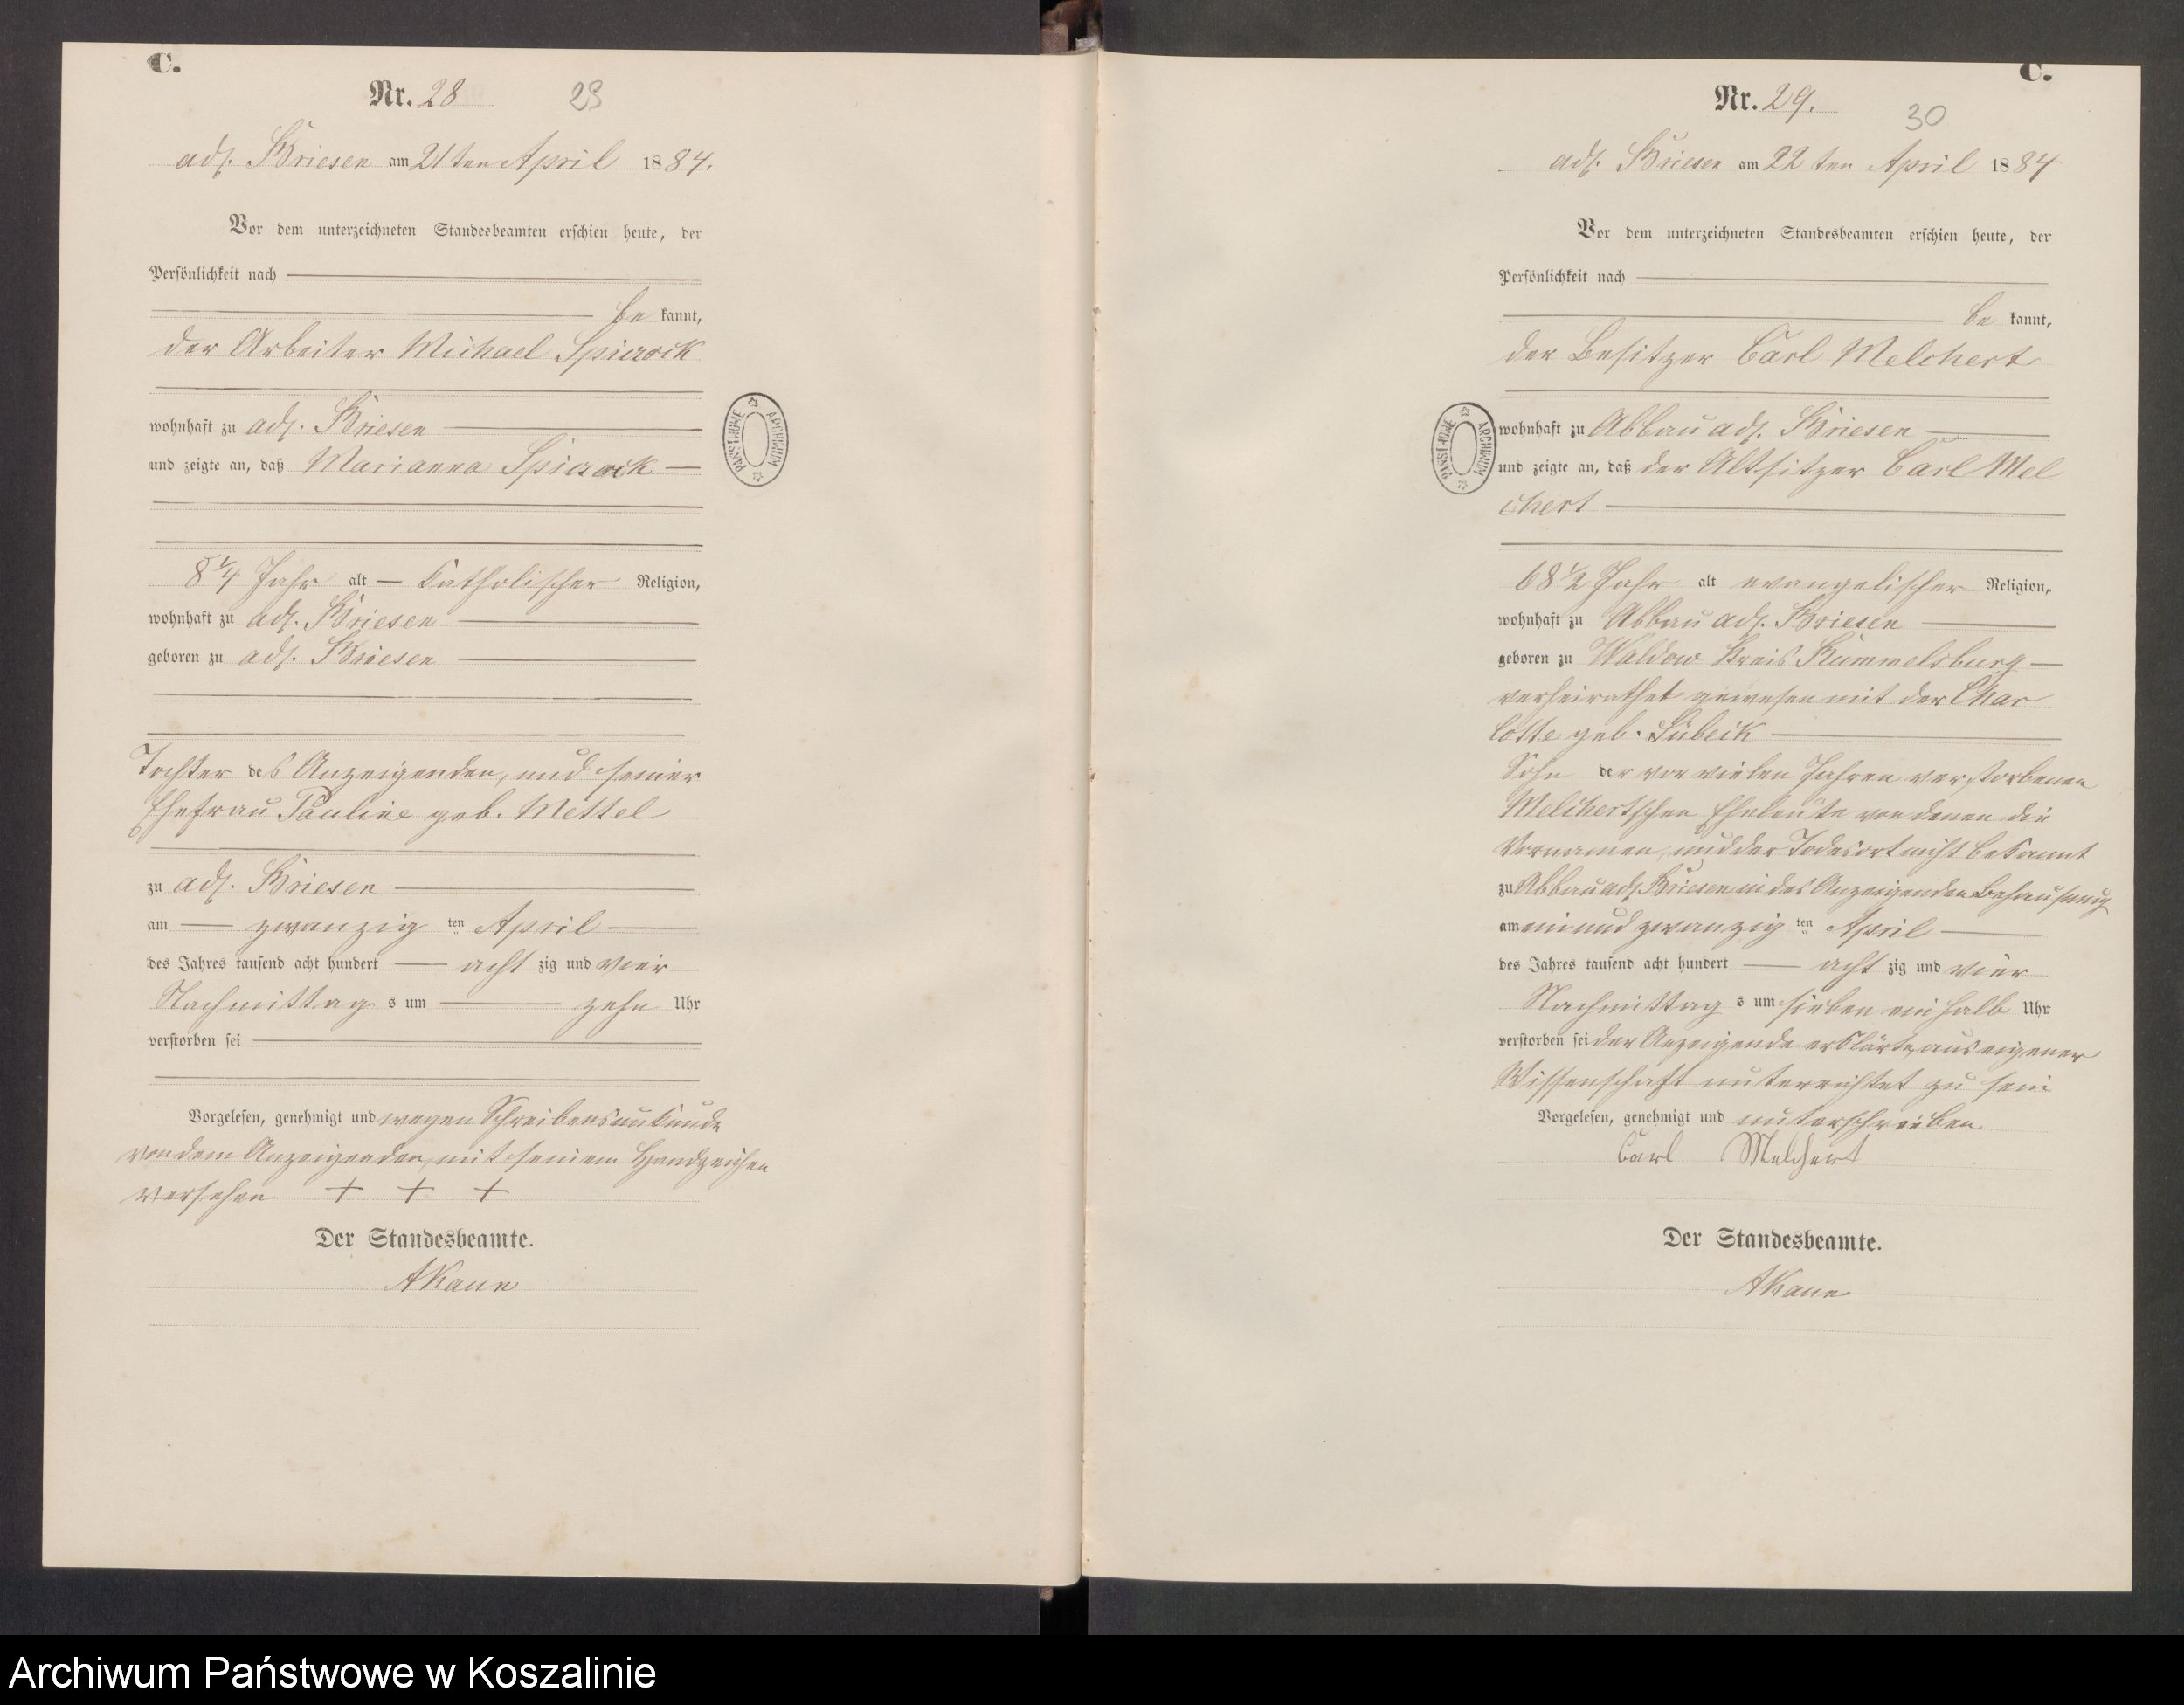 C.
Nr. 28
29
adl. Briesen am 21ten April 1884.
Vor dem unterzeichneten Standesbeamten erschien heute, der
Persönlichkeit nach
be kannt,
der Arbeiter Michael Spiczock
wohnhaft zu adl. Briesen
und zeigte an, daß Marianna Spiczock
8 1/4 Jahr alt Katholischer Religion,
wohnhaft zu adl. Briesen
geboren zu adl. Briesen
Tochter des Anzeigenden, und seiner
Ehefrau Pauline geb. Mettel
zu adl. Briesen
am zwanzig ten April
des Jahres tausend acht hundert acht zig und vier
Nachmittag s um zehn Uhr
verstorben sei
Vorgelesen, genehmigt und wegen Schreibensunkunde
von dem Anzeigenden, mit seinem Handzeichen
versehen + + +
Der Standesbeamte.
AKaun
ARCHIWUM PAŃSTWOWE
C.
Nr. 29.
30
adl. Briesen am 22 ten April 1884
Vor dem unterzeichneten Standesbeamten erschien heute, der
Persönlichkeit nach
be kannt,
der Besitzer Carl Melchert
wohnhaft zu Abbau adl. Briesen
und zeigte an, daß der Altsitzer Carl Mel
chert
68 1/2 Jahr alt evangelischer Religion,
wohnhaft zu Abbau adl. Briesen
geboren zu Waldow Kreis Rummelsburg
verheirathet gewesen mit der Char
lotte geb. Lübeck
Sohn der vor vielen Jahren verstorbenen
Melchertschen Eheleute von denen die
Vornamen, und der Todesort nicht bekannt
zu Abbau adl. Briesen in des Anzeigenden Behausung
am ein und zwanzig ten April
des Jahres tausend acht hundert acht zig und vier
Nachmittag s um sieben ein halb Uhr
verstorben sei der Anzeigende erklärte, aus eigener
Wissenschaft unterrichtet zu sein
Vorgelesen, genehmigt und unterschrieben
Carl Melchert
Der Standesbeamte.
AKaun
ARCHIWUM PAŃSTWOWE
Archiwum Państwowe w Koszalinie